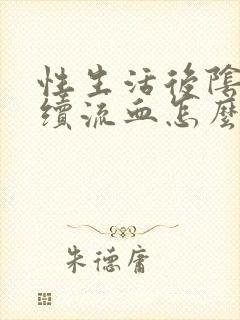 性生活後陰
續流血怎麼
朱德庸